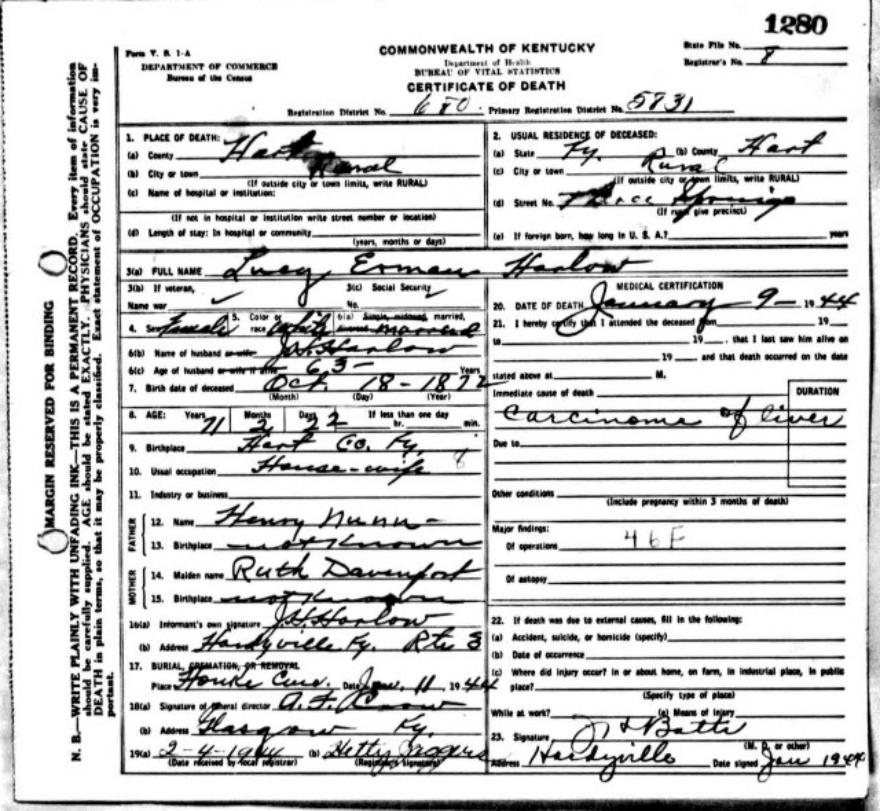 1280
Form V. S. 1-A
DEPARTMENT OF COMMERCE
Bureau of the Census
COMMONWEALTH OF KENTUCKY
Department of Health
BUREAU OF VITAL STATISTICS
CERTIFICATE OF DEATH
State File No.
Registrar's No. 8
Registration District No. 680 Primary Registration District No. 5831
1. PLACE OF DEATH:
(a) County Hart
(b) City or town Rural
(If outside city or town limits, write RURAL)
(c) Name of hospital or institution:
(If not in hospital or institution write street number or location)
(d) Length of stay: In hospital or community
(years, months or days)
2. USUAL RESIDENCE OF DECEASED:
(a) State Ky. (b) County Hart
(c) City or town Rural
(If outside city or town limits, write RURAL)
(d) Street No.
(If rural give precinct)
(e) If foreign born, how long in U. S. A.? years
3(a) FULL NAME Lucy Erman Harlow
3(b) If veteran, 3(c) Social Security
Name war No.
4. Sex Female 5. Color or race White 6(a) Single, widowed, married, divorced married
6(b) Name of husband or wife J.H. Harlow
6(c) Age of husband or wife if alive 63 - Years
7. Birth date of deceased Oct. 18 - 1872
(Month) (Day) (Year)
8. AGE: Years 71 Months 2 Days 22 If less than one day hr. min.
9. Birthplace Hart Co. Ky.
10. Usual occupation House-wife
11. Industry or business
FATHER
12. Name Henry Nunn -
13. Birthplace not Known
MOTHER
14. Maiden name Ruth Davenport
15. Birthplace not Known
16(a) Informant's own signature J.H. Harlow
(b) Address Hardyville Ky. Rte 3
17. BURIAL, CREMATION, OR REMOVAL
Place Date Jan. 11, 1944
18(a) Signature of funeral director A. F. Crow
(b) Address Glasgow Ky.
19(a) 2-4-1944 (b) Hetty Jaggers
(Date received by local registrar) (Registrar's signature)
MEDICAL CERTIFICATION
20. DATE OF DEATH January 9 - 1944
21. I hereby certify that I attended the deceased from 19
to 19 , that I last saw him alive on
19 , and that death occurred on the date
stated above at M.
Immediate cause of death
DURATION
Carcinoma of liver
Due to
Other conditions
(Include pregnancy within 3 months of death)
Major findings:
Of operations 46F
Of autopsy
22. If death was due to external causes, fill in the following:
(a) Accident, suicide, or homicide (specify)
(b) Date of occurrence
(c) Where did injury occur? in or about home, on farm, in industrial place, in public
place?
(Specify type of place)
While at work? (e) Means of Injury
23. Signature Batts
(M. D. or other)
Address Hardyville Date signed Jan 1944
MARGIN RESERVED FOR BINDING
N. B.—WRITE PLAINLY WITH UNFADING INK—THIS IS A PERMANENT RECORD. Every item of information
should be carefully supplied. AGE should be stated EXACTLY. PHYSICIANS should state CAUSE OF
DEATH in plain terms, so that it may be properly classified. Exact statement of OCCUPATION is very im-
portant.